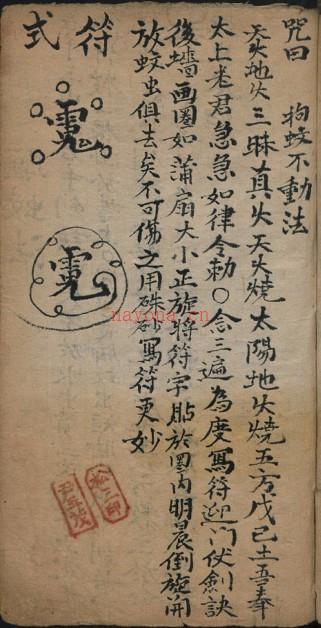 咒曰 拘蚊不動法
天火地火三昧真火天火燒太陽地火燒五方戊己土吾奉
太上老君急急如律令勅〇念三遍為度寫符迎门伏劍訣
後墻画圈如蒲扇大小正旋将符字貼於圈内明晨倒旋開
放蚊虫俱去矣不可傷之用硃砂寫符更妙
符式
nayona.cn